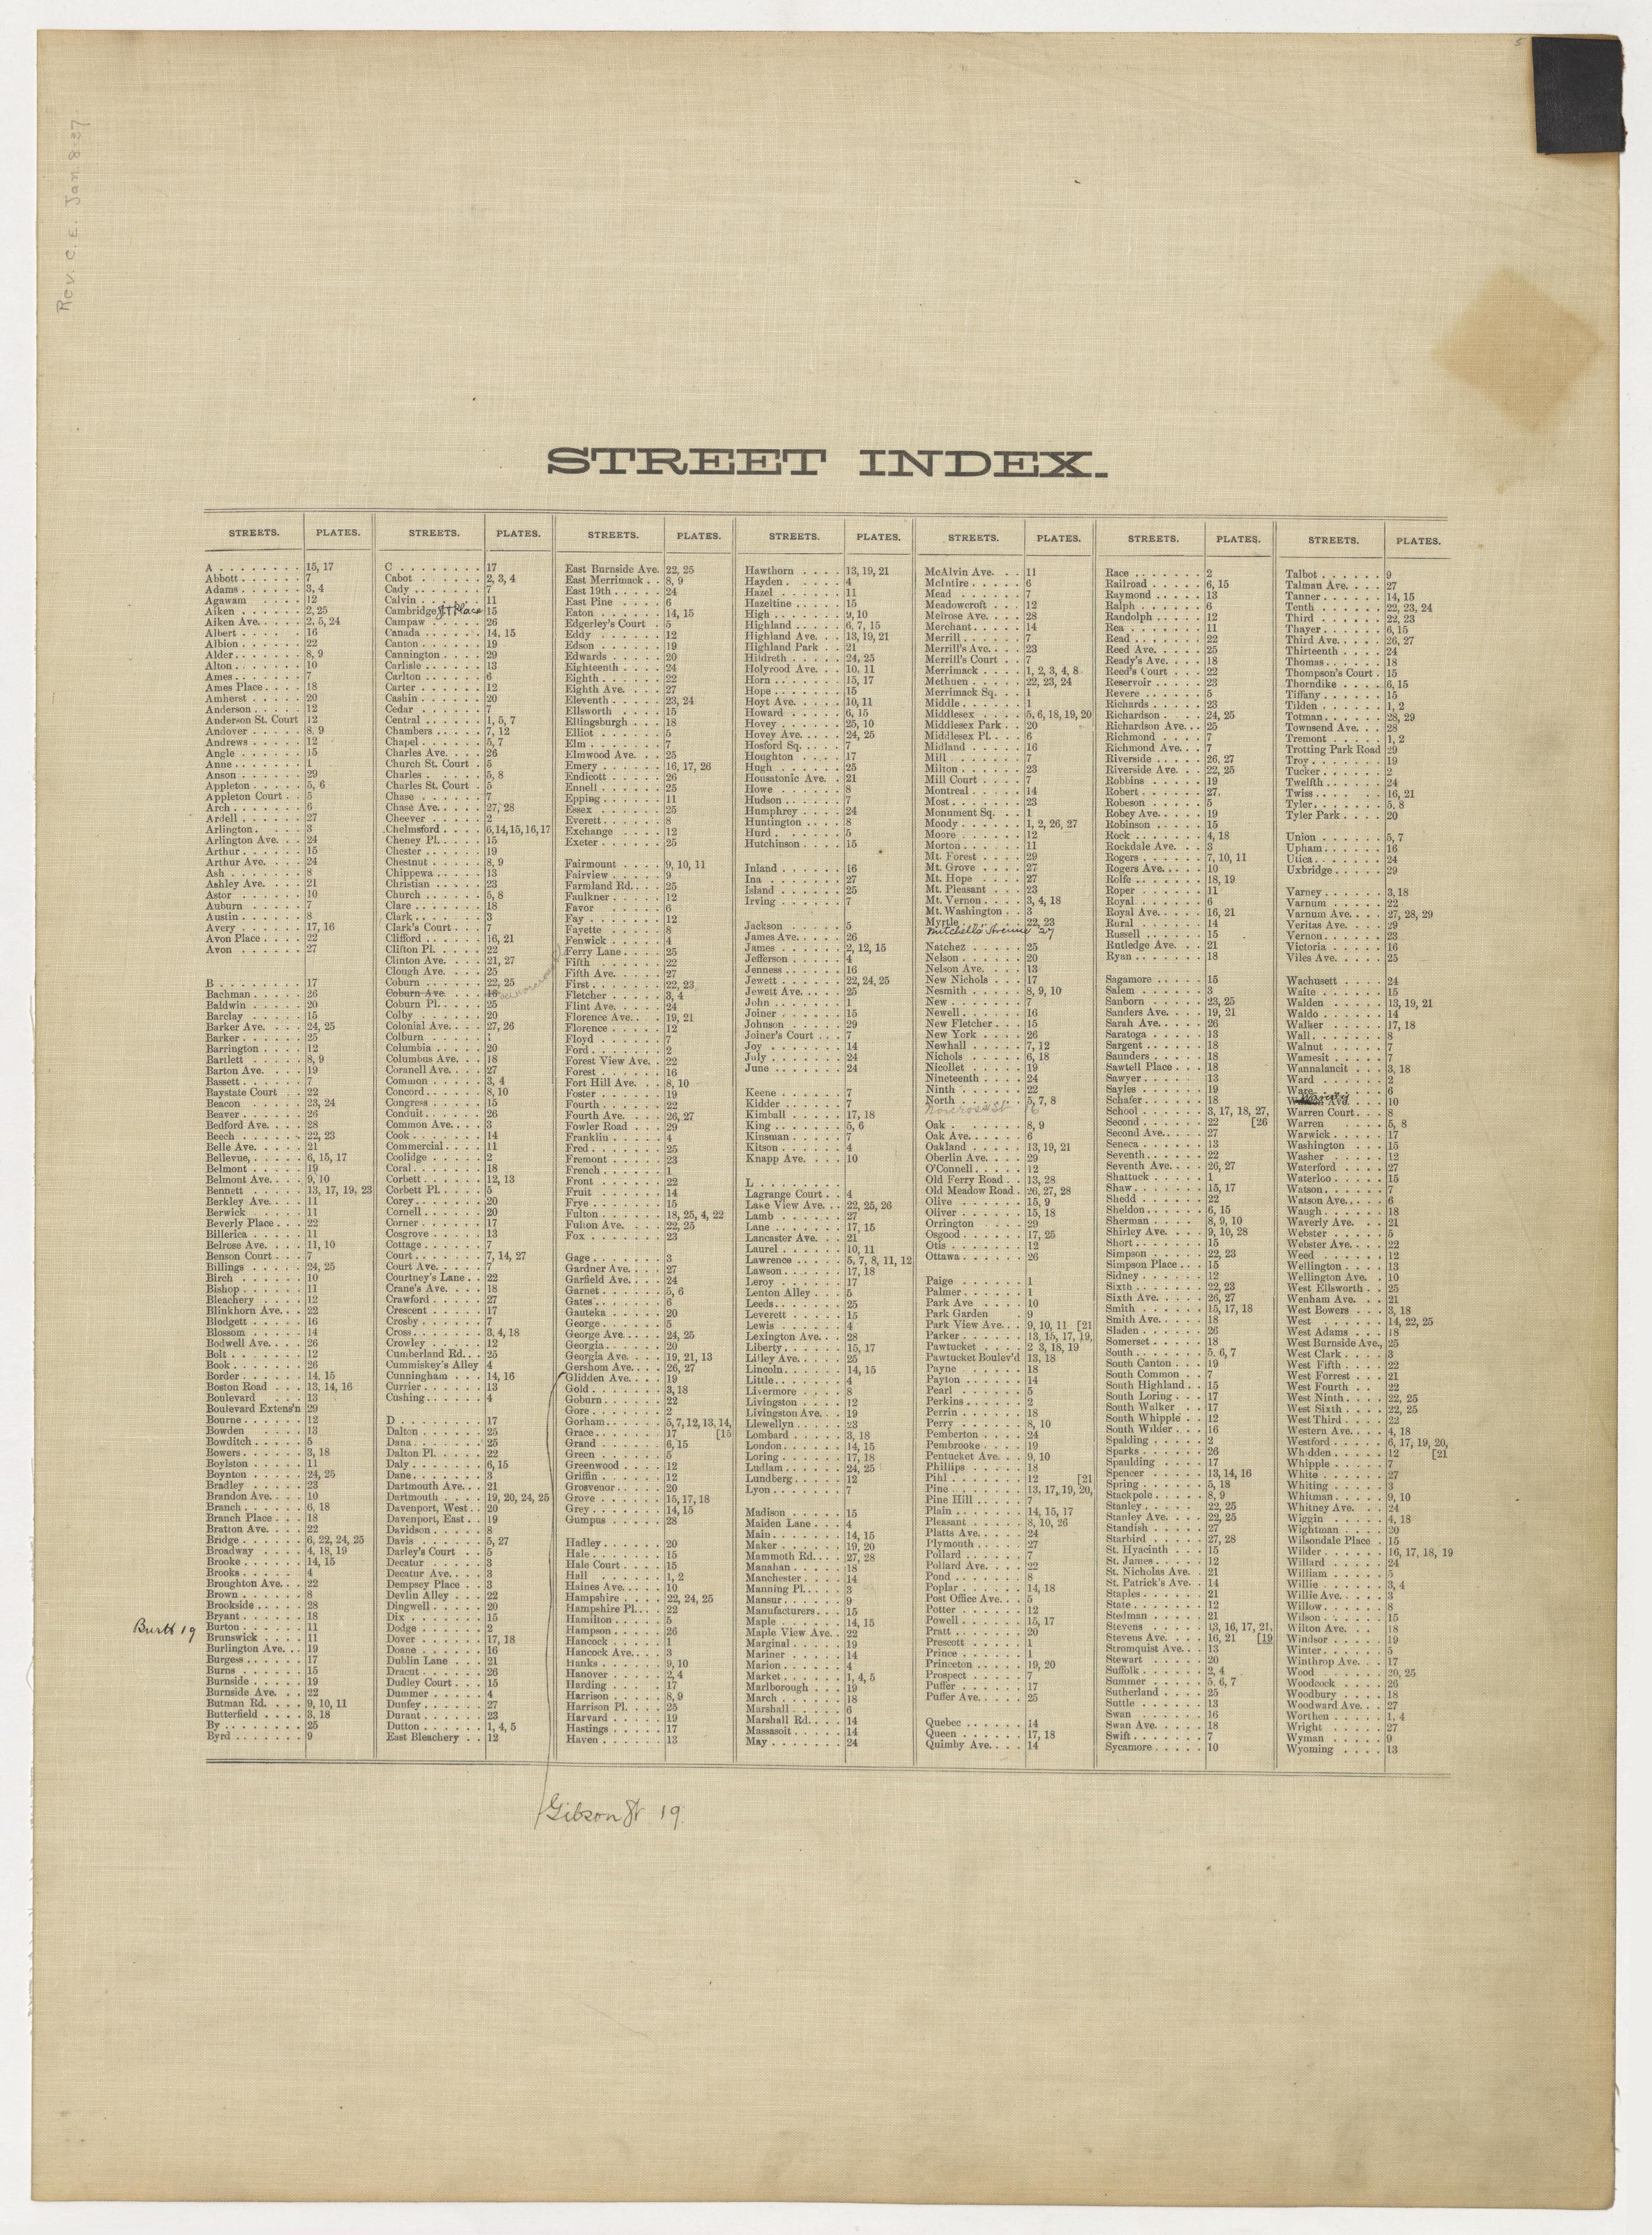 5
Rev. C. E. Jan. 8-37
STREET INDEX.
STREETS. PLATES.
A 15, 17
Abbott 7
Adams 3, 4
Agawam 12
Aiken 2, 25
Aiken Ave. 2, 5, 24
Albert 16
Albion 22
Alder 8, 9
Alton 10
Ames 7
Ames Place 18
Amherst 20
Anderson 12
Anderson St. Court 12
Andover 8, 9
Andrews 12
Angle 15
Anne 1
Anson 29
Appleton 5, 6
Appleton Court 5
Arch 6
Ardell 27
Arlington 3
Arlington Ave. 24
Arthur 15
Arthur Ave. 24
Ash 8
Ashley Ave. 21
Astor 10
Auburn 7
Austin 8
Avery 17, 16
Avon Place 22
Avon 27
B 17
Bachman 26
Baldwin 20
Barclay 15
Barker Ave. 24, 25
Barker 25
Barrington 12
Bartlett 8, 9
Barton Ave. 19
Bassett 7
Baystate Court 22
Beacon 23, 24
Beaver 26
Bedford Ave. 28
Beech 22, 23
Belle Ave. 21
Bellevue, 6, 15, 17
Belmont 19
Belmont Ave. 9, 10
Bennett 13, 17, 19, 23
Berkley Ave. 11
Berwick 11
Beverly Place 22
Billerica 11
Belrose Ave. 11, 10
Benson Court 7
Billings 24, 25
Birch 10
Bishop 11
Bleachery 12
Blinkhorn Ave. 22
Blodgett 16
Blossom 14
Bodwell Ave. 26
Bolt 12
Book 26
Border 14, 15
Boston Road 13, 14, 16
Boulevard 13
Boulevard Extens'n 29
Bourne 12
Bowden 13
Bowditch 5
Bowers 3, 18
Boylston 11
Boynton 24, 25
Bradley 23
Brandon Ave. 10
Branch 6, 18
Branch Place 18
Bratton Ave. 22
Bridge 6, 22, 24, 25
Broadway 4, 18, 19
Brooke 14, 15
Brooks 4
Broughton Ave. 22
Brown 8
Brookside 28
Bryant 18
Burtt 19
Burton 11
Brunswick 11
Burlington Ave. 19
Burgess 17
Burns 15
Burnside 19
Burnside Ave. 22
Butman Rd. 9, 10, 11
Butterfield 3, 18
By 25
Byrd 9
STREETS. PLATES.
C 17
Cabot 2, 3, 4
Cady 7
Calvin 11
Cambridge St Place 15
Campaw 26
Canada 14, 15
Canton 19
Cannington 29
Carlisle 13
Carlton 6
Carter 12
Cashin 20
Cedar 7
Central 1, 5, 7
Chambers 7, 12
Chapel 5, 7
Charles Ave. 26
Church St. Court 5
Charles 5, 8
Charles St. Court 5
Chase 7
Chase Ave. 27, 28
Cheever 2
Chelmsford 6,14,15,16,17
Cheney Pl. 15
Chester 19
Chestnut 8, 9
Chippewa 13
Christian 23
Church 5, 8
Clare 18
Clark 3
Clark's Court 7
Clifford 16, 21
Clifton Pl. 22
Clinton Ave. 21, 27
Clough Ave. 25
Coburn 22, 25
Coburn Ave. 18
Coburn Pl. 25
Colby 20
Colonial Ave. 27, 26
Colburn
Columbia 20
Columbus Ave. 18
Coranell Ave. 27
Common 3, 4
Concord 8, 10
Congress 15
Conduit 26
Common Ave. 3
Cook 14
Commercial 11
Coolidge 2
Coral 18
Corbett 12, 13
Corbett Pl. 5
Corey 20
Cornell 20
Corner 17
Cosgrove 13
Cottage 7
Court 7, 14, 27
Court Ave. 7
Courtney's Lane 22
Crane's Ave. 18
Crawford 27
Crescent 17
Crosby 7
Cross 3, 4, 18
Crowley 12
Cumberland Rd. 25
Cummiskey's Alley 4
Cunningham 14, 16
Currier 13
Cushing 4
D 17
Dalton 25
Dana 25
Dalton Pl. 22
Daly 6, 15
Dane 3
Dartmouth Ave. 21
Dartmouth 19, 20, 24, 25
Davenport, West 20
Davenport, East 19
Davidson 8
Davis 5, 27
Darley's Court 5
Decatur 3
Decatur Ave. 3
Dempsey Place 3
Devlin Alley 22
Dingwell 20
Dix 15
Dodge 2
Dover 17, 18
Doane 16
Dublin Lane 21
Dracut 26
Dudley Court 15
Dummer 4
Dunfey 27
Durant 23
Dutton 1, 4, 5
East Bleachery 12
STREETS. PLATES.
East Burnside Ave. 22, 25
East Merrimack 8, 9
East 19th 24
East Pine 6
Eaton 14, 15
Edgerley's Court 5
Eddy 12
Edson 19
Edwards 20
Eighteenth 24
Eighth 22
Eighth Ave. 27
Eleventh 23, 24
Ellsworth 15
Ellingsburgh 18
Elliot 5
Elm 7
Elmwood Ave. 25
Emery 16, 17, 26
Endicott 26
Ennell 25
Epping 11
Essex 25
Everett 8
Exchange 12
Exeter 25
Fairmount 9, 10, 11
Fairview 9
Farmland Rd. 25
Faulkner 12
Favor 6
Fay 12
Fayette 8
Fenwick 4
Ferry Lane 25
Fifth 22
Fifth Ave. 27
First 22, 23
Fletcher 3, 4
Flint Ave. 24
Florence Ave. 19, 21
Florence 12
Floyd 7
Ford 2
Forest View Ave. 22
Forest 16
Fort Hill Ave. 8, 10
Foster 19
Fourth 22
Fourth Ave. 26, 27
Fowler Road 29
Franklin 4
Fred 25
Fremont 23
French 1
Front 22
Fruit 14
Frye 15
Fulton 18, 25, 4, 22
Fulton Ave. 22, 25
Fox 23
Gage 3
Gardner Ave. 27
Garfield Ave. 24
Garnet 5, 6
Gates 6
Gauteka 20
George 5
George Ave. 24, 25
Georgia 20
Georgia Ave. 19, 21, 13
Gershom Ave. 26, 27
Glidden Ave. 19
Gold 3, 18
Goburn 22
Gore 2
Gorham 5,7,12,13,14,
Grace 17 [15
Grand 6, 15
Green 5
Greenwood 12
Griffin 12
Grosvenor 20
Grove 15, 17, 18
Grey 14, 15
Gumpus 28
Hadley 20
Hale 15
Hale Court 15
Hall 1, 2
Haines Ave. 10
Hampshire 22, 24, 25
Hampshire Pl. 22
Hamilton 5
Hampson 26
Hancock 1
Hancock Ave. 3
Hanks 9, 10
Hanover 2, 4
Harding 17
Harrison 8, 9
Harrison Pl. 25
Harvard 19
Hastings 17
Haven 13
STREETS. PLATES.
Hawthorn 13, 19, 21
Hayden 4
Hazel 11
Hazeltine 15
High 9, 10
Highland 6, 7, 15
Highland Ave. 13, 19, 21
Highland Park 21
Hildreth 24, 25
Holyrood Ave. 10, 11
Horn 15, 17
Hope 15
Hoyt Ave. 10, 11
Howard 6, 15
Hovey 25, 10
Hovey Ave. 24, 25
Hosford Sq. 7
Houghton 17
Hugh 25
Housatonic Ave. 21
Howe 8
Hudson 7
Humphrey 24
Huntington 8
Hurd 5
Hutchinson 15
Inland 16
Ina 27
Island 25
Irving 7
Jackson 5
James Ave. 26
James 2, 12, 15
Jefferson 4
Jenness 16
Jewett 22, 24, 25
Jewett Ave. 25
John 1
Joiner 15
Johnson 29
Joiner's Court 7
Joy 14
July 24
June 24
Keene 7
Kidder 7
Kimball 17, 18
King 5, 6
Kinsman 7
Kitson 4
Knapp Ave. 10
L
Lagrange Court 4
Lake View Ave. 22, 25, 26
Lamb 27
Lane 17, 15
Lancaster Ave. 21
Laurel 10, 11
Lawrence 5, 7, 8, 11, 12
Lawson 17, 18
Leroy 17
Lenton Alley 5
Leeds 25
Leverett 15
Lewis 4
Lexington Ave. 28
Liberty 15, 17
Lilley Ave. 25
Lincoln 14, 15
Little 4
Livermore 8
Livingston 12
Livingston Ave. 19
Llewellyn 23
Lombard 3, 18
London 14, 15
Loring 17, 18
Ludlam 24, 25
Lundberg 12
Lyon 7
Madison 15
Maiden Lane 4
Main 14, 15
Maker 19, 20
Mammoth Rd. 27, 28
Manahan 18
Manchester 14
Manning Pl. 3
Mansur 9
Manufacturers 15
Maple 14, 15
Maple View Ave. 22
Marginal 19
Mariner 14
Marion 4
Market 1, 4, 5
Marlborough 19
March 18
Marshall 6
Marshall Rd. 14
Massasoit 14
May 24
STREETS. PLATES.
McAlvin Ave. 11
McIntire 6
Mead 7
Meadowcroft 12
Melrose Ave. 28
Merchant 14
Merrill 7
Merrill's Ave. 23
Merrill's Court 7
Merrimack 1, 2, 3, 4, 8
Methuen 22, 23, 24
Merrimack Sq. 1
Middle 1
Middlesex 5, 6, 18, 19, 20
Middlesex Park 20
Middlesex Pl. 6
Midland 16
Mill 7
Milton 23
Mill Court 7
Montreal 14
Most 23
Monument Sq. 1
Moody 1, 2, 26, 27
Moore 12
Morton 11
Mt. Forest 29
Mt. Grove 27
Mt. Hope 27
Mt. Pleasant 23
Mt. Vernon 3, 4, 18
Mt. Washington 3
Myrtle 22, 23
Mitchells Avenue 27
Natchez 25
Nelson 20
Nelson Ave. 13
New Nichols 17
Nesmith 8, 9, 10
New 7
Newell 16
New Fletcher 15
New York 26
Newhall 7, 12
Nichols 6, 18
Nicollet 19
Nineteenth 24
Ninth 22
North 5, 7, 8
Norcross St 16
Oak 8, 9
Oak Ave. 6
Oakland 13, 19, 21
Oberlin Ave. 29
O'Connell 12
Old Ferry Road 13, 28
Old Meadow Road 26, 27, 28
Olive 15, 9
Oliver 15, 18
Orrington 29
Osgood 17, 25
Otis 12
Ottawa 26
Paige 1
Palmer 1
Park Ave 10
Park Garden 9
Park View Ave. 9, 10, 11 [21
Parker 13, 15, 17, 19,
Pawtucket 2 3, 18, 19
Pawtucket Boulev'd 13, 18
Payne 18
Payton 14
Pearl 5
Perkins 2
Perrin 18
Perry 8, 10
Pemberton 24
Pembrooke 19
Pentucket Ave. 9, 10
Phillips 18
Pihl 12 [21
Pine 13, 17, 19, 20,
Pine Hill 7
Plain 14, 15, 17
Pleasant 8, 10, 26
Platts Ave. 24
Plymouth 27
Pollard 7
Pollard Ave. 22
Pond 8
Poplar 14, 18
Post Office Ave. 5
Potter 12
Powell 15, 17
Pratt 20
Prescott 1
Prince 1
Princeton 19, 20
Prospect 7
Puffer 17
Puffer Ave. 25
Quebec 14
Queen 17, 18
Quimby Ave. 14
STREETS. PLATES.
Race 2
Railroad 6, 15
Raymond 13
Ralph 6
Randolph 12
Rea 11
Read 22
Reed Ave. 25
Ready's Ave. 18
Reed's Court 22
Reservoir 23
Revere 5
Richards 23
Richardson 24, 25
Richardson Ave. 25
Richmond 7
Richmond Ave. 7
Riverside 26, 27
Riverside Ave. 22, 25
Robbins 19
Robert 27
Robeson 5
Robey Ave. 19
Robinson 15
Rock 4, 18
Rockdale Ave. 3
Rogers 7, 10, 11
Rogers Ave. 10
Rolfe 18, 19
Roper 11
Royal 6
Royal Ave. 16, 21
Rural 14
Russell 15
Rutledge Ave. 21
Ryan 18
Sagamore 15
Salem 3
Sanborn 23, 25
Sanders Ave. 19, 21
Sarah Ave. 26
Saratoga 13
Sargent 18
Saunders 18
Sawtell Place 18
Sawyer 13
Sayles 19
Schafer 18
School 3, 17, 18, 27,
Second 22 [26
Second Ave. 27
Seneca 13
Seventh 22
Seventh Ave. 26, 27
Shattuck 1
Shaw 15, 17
Shedd 22
Sheldon 6, 15
Sherman 8, 9, 10
Shirley Ave. 9, 10, 28
Short 15
Simpson 22, 23
Simpson Place 15
Sidney 12
Sixth 22, 23
Sixth Ave. 26, 27
Smith 15, 17, 18
Smith Ave. 18
Sladen 26
Somerset 18
South 5, 6, 7
South Canton 19
South Common 7
South Highland 15
South Loring 17
South Walker 17
South Whipple 12
South Wilder 16
Spalding 2
Sparks 26
Spaulding 17
Spencer 13, 14, 16
Spring 5, 18
Stackpole 8, 9
Stanley 22, 25
Stanley Ave. 22, 25
Standish 27
Starbird 27, 28
St. Hyacinth 15
St. James 12
St. Nicholas Ave. 21
St. Patrick's Ave. 14
Staples 21
State 12
Stedman 21
Stevens 13, 16, 17, 21,
Stevens Ave. 16, 21 [19
Stromquist Ave. 13
Stewart 20
Suffolk 2, 4
Summer 5, 6, 7
Sutherland 25
Suttle 13
Swan 16
Swan Ave. 18
Swift 7
Sycamore 10
STREETS. PLATES.
Talbot 9
Talman Ave. 27
Tanner 14, 15
Tenth 22, 23, 24
Third 22, 23
Thayer 6, 15
Third Ave. 26, 27
Thirteenth 24
Thomas 18
Thompson's Court 15
Thorndike 6, 15
Tiffany 15
Tilden 1, 2
Totman 28, 29
Townsend Ave. 28
Tremont 1, 2
Trotting Park Road 29
Troy 19
Tucker 2
Twelfth 24
Twiss 16, 21
Tyler 5, 8
Tyler Park 20
Union 5, 7
Upham 16
Utica 24
Uxbridge 29
Varney 3, 18
Varnum 22
Varnum Ave. 27, 28, 29
Veritas Ave. 29
Vernon 23
Victoria 16
Viles Ave. 25
Wachusett 24
Waite 15
Walden 13, 19, 21
Waldo 14
Walker 17, 18
Wall 8
Walnut 7
Wamesit 7
Wannalancit 3, 18
Ward 2
Ware 6
Ave. 10
Warren Court 8
Warren 5, 8
Warwick 17
Washington 15
Washer 12
Waterford 27
Waterloo 15
Watson 7
Watson Ave. 6
Waugh 18
Waverly Ave. 21
Webster 5
Webster Ave. 22
Weed 12
Wellington 13
Wellington Ave. 10
West Ellsworth 25
Wenham Ave. 21
West Bowers 3, 18
West 14, 22, 25
West Adams 18
West Burnside Ave., 25
West Clark 3
West Fifth 22
West Forrest 21
West Fourth 22
West Ninth 22, 25
West Sixth 22, 25
West Third 22
Western Ave. 4, 18
Westford 6, 17, 19, 20,
Whidden 12 [21
Whipple 7
White 27
Whiting 3
Whitman 9, 10
Whitney Ave. 24
Wiggin 4, 18
Wightman 20
Wilsondale Place 15
Wilder 16, 17, 18, 19
Willard 24
William 5
Willie 3, 4
Willie Ave. 3
Willow 8
Wilson 15
Wilton Ave. 18
Windsor 19
Winter 5
Winthrop Ave. 17
Wood 20, 25
Woodcock 26
Woodbury 18
Woodward Ave. 27
Worthen 1, 4
Wright 27
Wyman 9
Wyoming 13
Gibson St 19